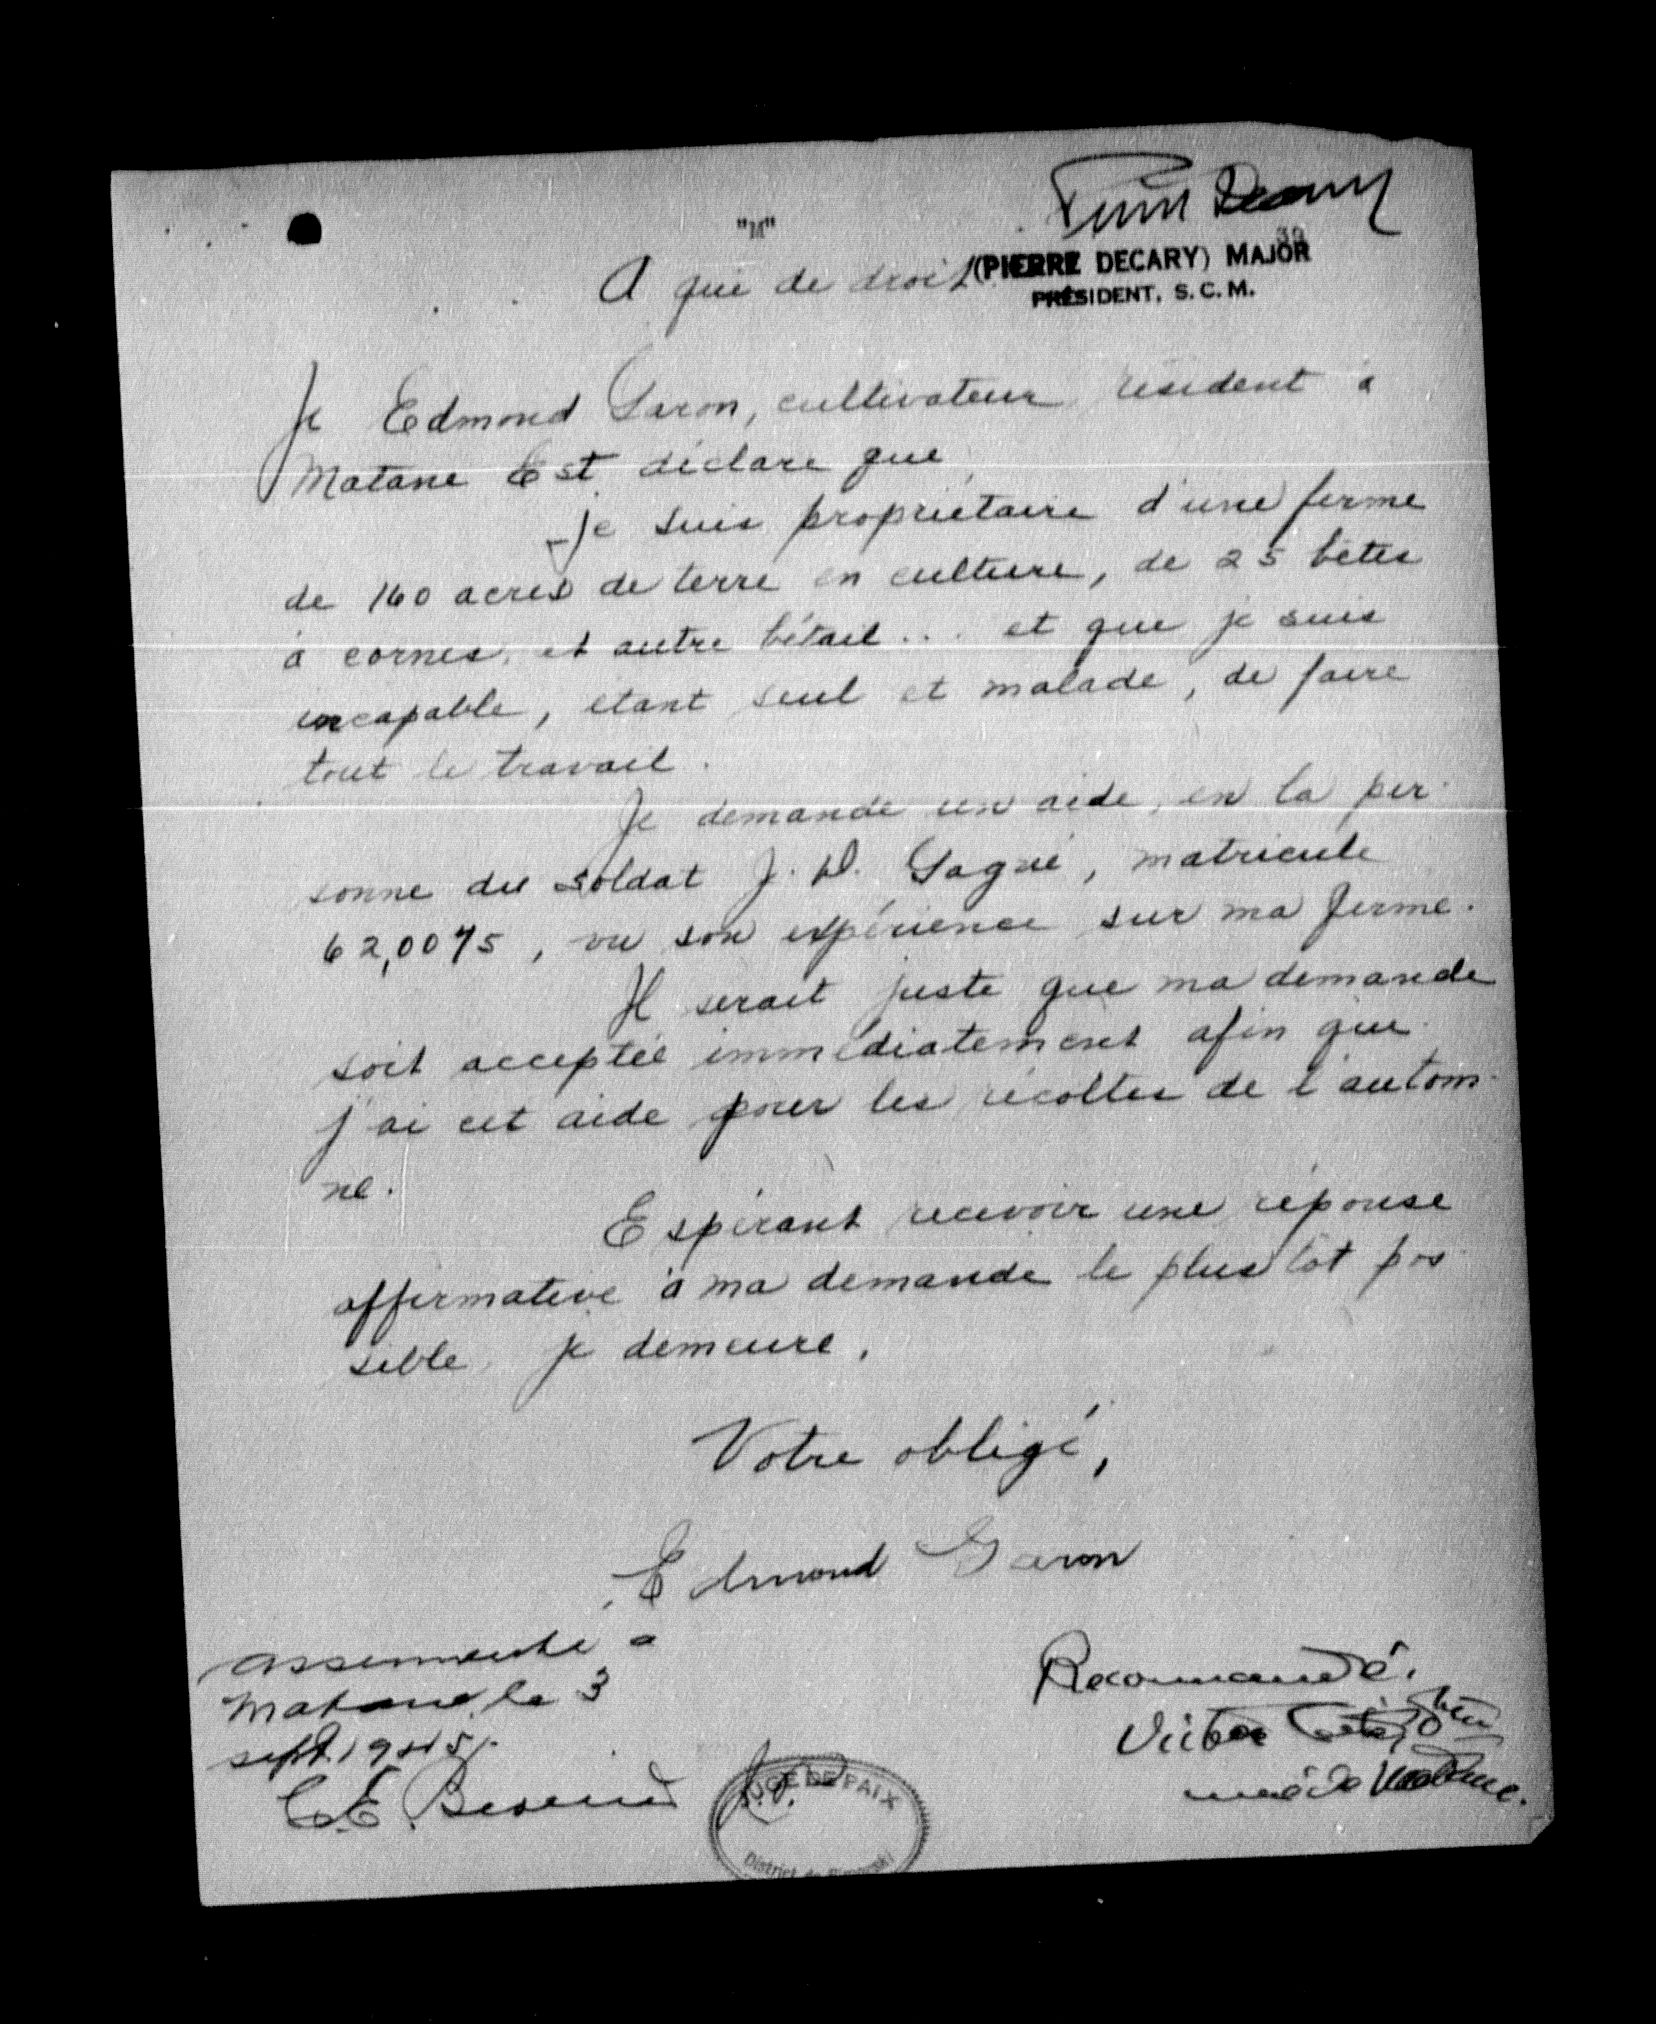 Pierre Decary
"M"
39
(PIERRE DECARY) MAJOR
PRÉSIDENT, S.C.M.
A qui de droit
Je Edmond Garon, cultivateur résident à
Matane Est déclare que
Je suis propriétaire d'une ferme
de 160 acres de terre en culture, de 25 bêtes
à cornes, et autre bétail... et que je suis
incapable, étant seul et malade, de faire
tout le travail.
Je demande un aide, en la per-
sonne du soldat J. D. Gagné, matricule
62,0075, vu son expérience sur ma ferme.
Il serait juste que ma demande
soit acceptée immédiatement afin que
j'ai cet aide pour les récoltes de l'autom-
ne.
Espérant recevoir une réponse
affirmative à ma demande le plus tôt pos-
sible, je demeure,
Votre obligé,
Edmond Garon
Assermenté à
Matane, le 3
sept. 1945.
C. E. J.P.
JUGE DE PAIX
District de Rimouski
Recommandé.
Victor Côté, ptre
curé de Matane.